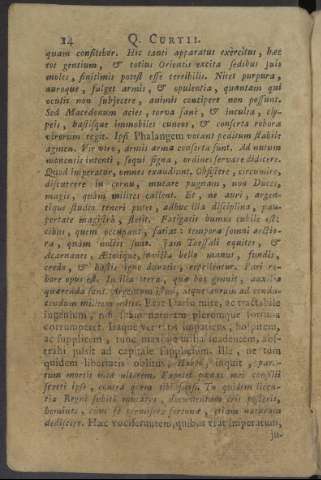 14 Q. CURTII.
quam confitebor. Hic tanti apparatus exercitus, hæc
tot gentium, & totius Orientis excita sedibus suis
moles, finitimis potest esse terribilis. Nitet purpura,
auroque, fulget armis, & opulentia, quantam qui
oculis non subjecere, animis concipere non possunt.
Sed Macedonum acies, torva sane, & inculta, cly-
peis, hastisque immobiles cuneos, & conserta robora
virorum tegit. Ipsi Phalangem vocant peditum stabile
agmen. Vir viro, armis arma conserta sunt. Ad nutum
monentis intenti, sequi signa, ordines servare didicere.
Quod imperatur, omnes exaudiunt. Obsistere, circumire,
discurrere in cornu, mutare pugnam, non Duces
magis, quam milites callent. Et, ne auri, argen-
tique studio teneri putes, adhuc illa disciplina, pau-
pertate magistrâ, stetit. Fatigatis humus cubile est:
cibus, quem occupant, satiat: tempora somni arctio-
ra, quàm noctis sunt. Jam Thessali equites, &
Acarnanes, Ætolique, invicta bello manus, fundis,
credo, & hastis igne duratis, repellentur. Pari ro-
bore opus est. In illa terra, quæ hos genuit, auxilia
quærenda sunt. Argentum istud, atque aurum ad condu-
cendum militem mitte. Erat Dario mite, ac tractabile
ingenium, nisi suam naturam plerumque fortuna
corrumperet. Itaque veritatis impatiens, hospitem,
ac supplicem, tunc maxime utilia suadentem, abs-
trahi jussit ad capitale supplicium. Ille, ne tum
quidem libertatis oblitus, Habeo, inquit, para-
tum mortis meæ ultorem. Expetet pœnas mei consilii
spreti ipse, contra quem tibi suasi. Tu quidem licen-
tia Regni subito mutatus, documentum eris posteris,
homines, cum se permisere fortunæ, etiam naturam
dediscere. Hæc vociferantem, quibus erat imperatum,
ju-